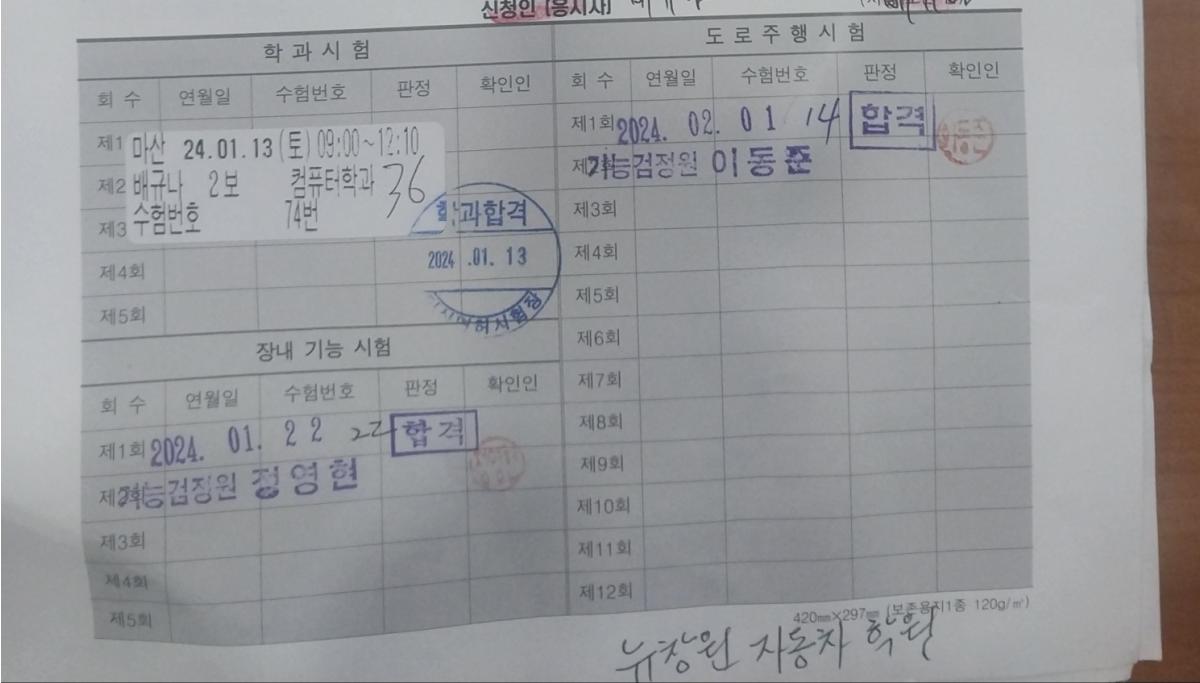 신청인 (응시자)
학 과 시 험
회 수 연월일 수험번호 판정 확인인
제1
마산 24.01.13(토) 09:00~12:10
제2
배규나 2보 컴퓨터학과 36
제3
수험번호 74번
과합격
제4회
2024 .01. 13
제5회
허시험장
장내 기능 시험
회 수 연월일 수험번호 판정 확인인
제1회 2024. 01. 22 22 합격
제2회 기능검정원 정영현
제3회
제4회
제5회
도 로 주 행 시 험
회 수 연월일 수험번호 판정 확인인
제1회 2024. 02. 01 14 합격
제2회 기능검정원 이동준
제3회
제4회
제5회
제6회
제7회
제8회
제9회
제10회
제11회
제12회
420㎜×297㎜ (보존용지1종 120g/㎡)
뉴창원 자동차 학원